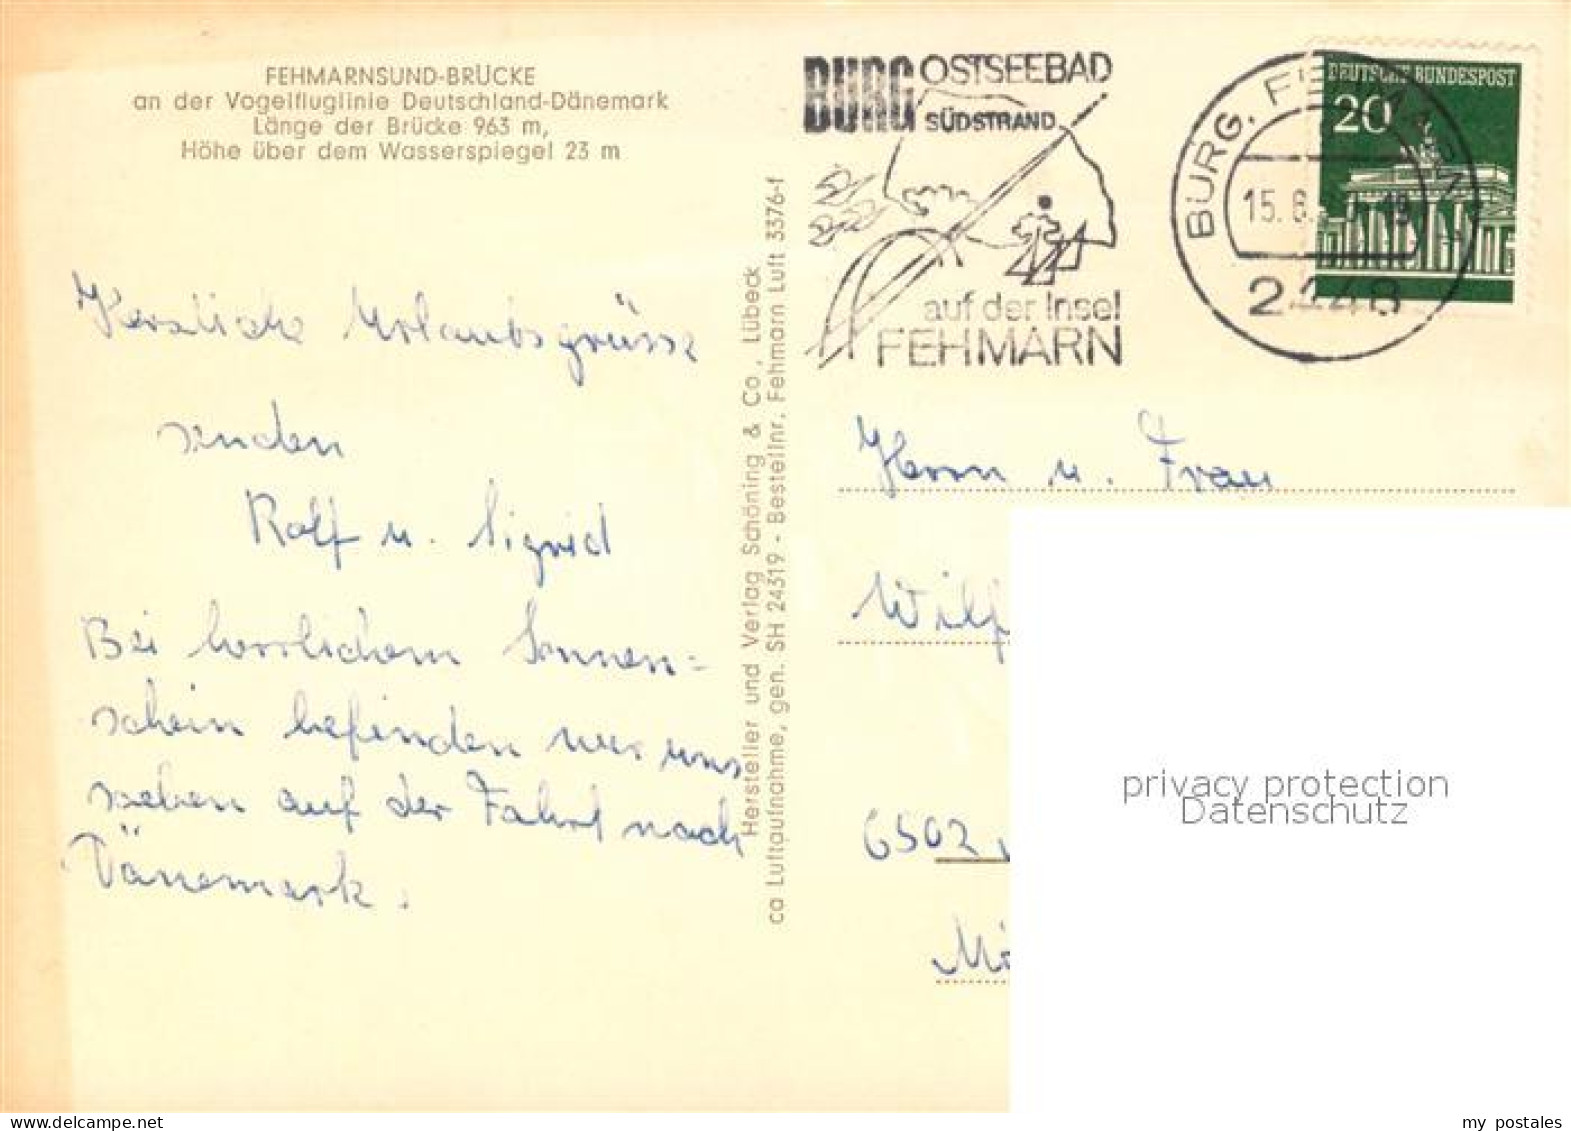 FEHMARNSUND-BRÜCKE
an der Vogelfluglinie Deutschland-Dänemark
Länge der Brücke 963 m,
Höhe über dem Wasserspiegel 23 m
Herzliche Urlaubsgrüsse
senden
Rolf u. Sigrid
Bei herrlichem Sonnen=
schein befinden wir uns
soeben auf der Fahrt nach
Dänemark.
Hersteller und Verlag Schöning & Co., Lübeck
ca Luftaufnahme, gen. SH 24319 - Bestellnr. Fehmarn Luft 3376-f
BURG OSTSEEBAD
SÜDSTRAND
auf der Insel
FEHMARN
BURG, FEHMARN
15.8.
2448
DEUTSCHE BUNDESPOST
20
Herrn u. Frau
Wilf
6502
privacy protection
Datenschutz
my postales